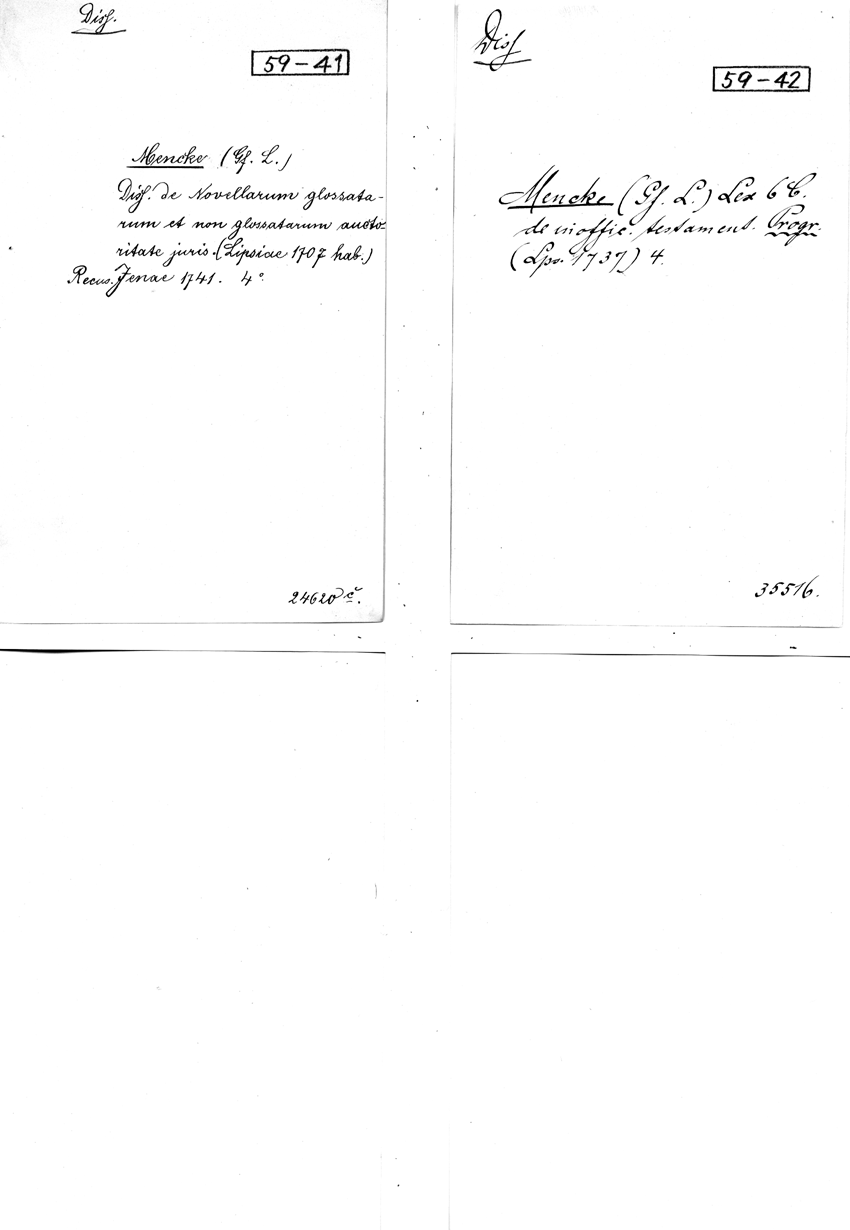 Diss.
59-41
Mencke (Gf. L.)
Diss. de Novellarum glossata-
rum et non glossatarum aucto-
ritate juris. (Lipsiae 1707 hab.)
Recus. Jenae 1741. 4°.
24620 c.
Diss
59-42
Mencke (Gf. L.) Lex 6 C.
de inoffic. testament. Progr.
(Lps. 1737) 4.
35516.